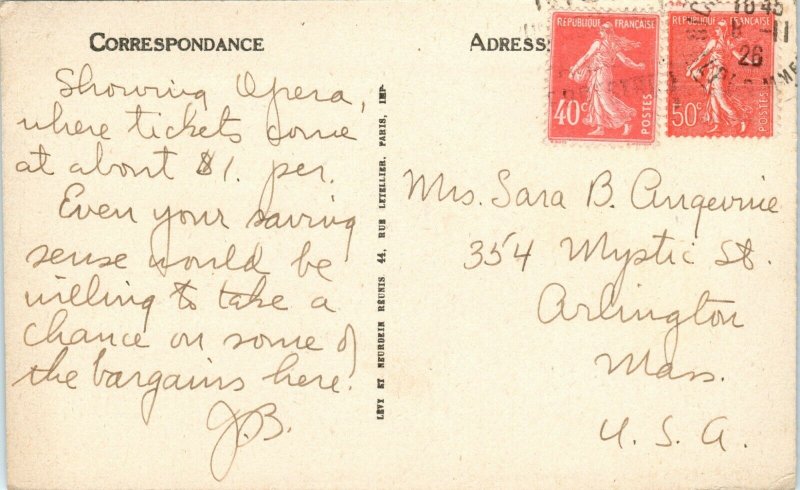 CORRESPONDANCE
Showing Opera,
where tickets come
at about $1. per.
Even your saving
sense would be
willing to take a
chance on some of
the bargains here.
J.B.
LÉVY ET NEURDEIN RÉUNIS 44, RUE LETELLIER, PARIS, IMP.
ADRESS
REPUBLIQUE FRANÇAISE
40c
POSTES
REPUBLIQUE FRANÇAISE
50c
POSTES
10 45
11
26
Mrs. Sara B. Angevine
354 Mystic St.
Arlington
Mass.
U. S. A.